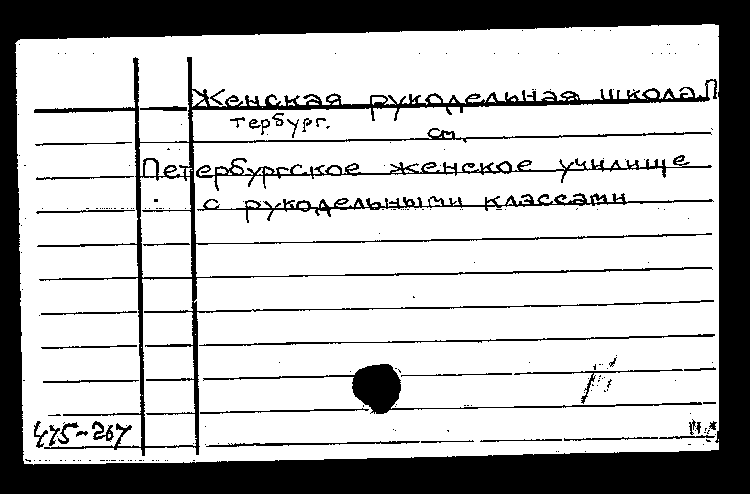 Женская рукодельная школа. П
тербург.
см.
Петербургское женское училище
с рукодельными классами.
475-267